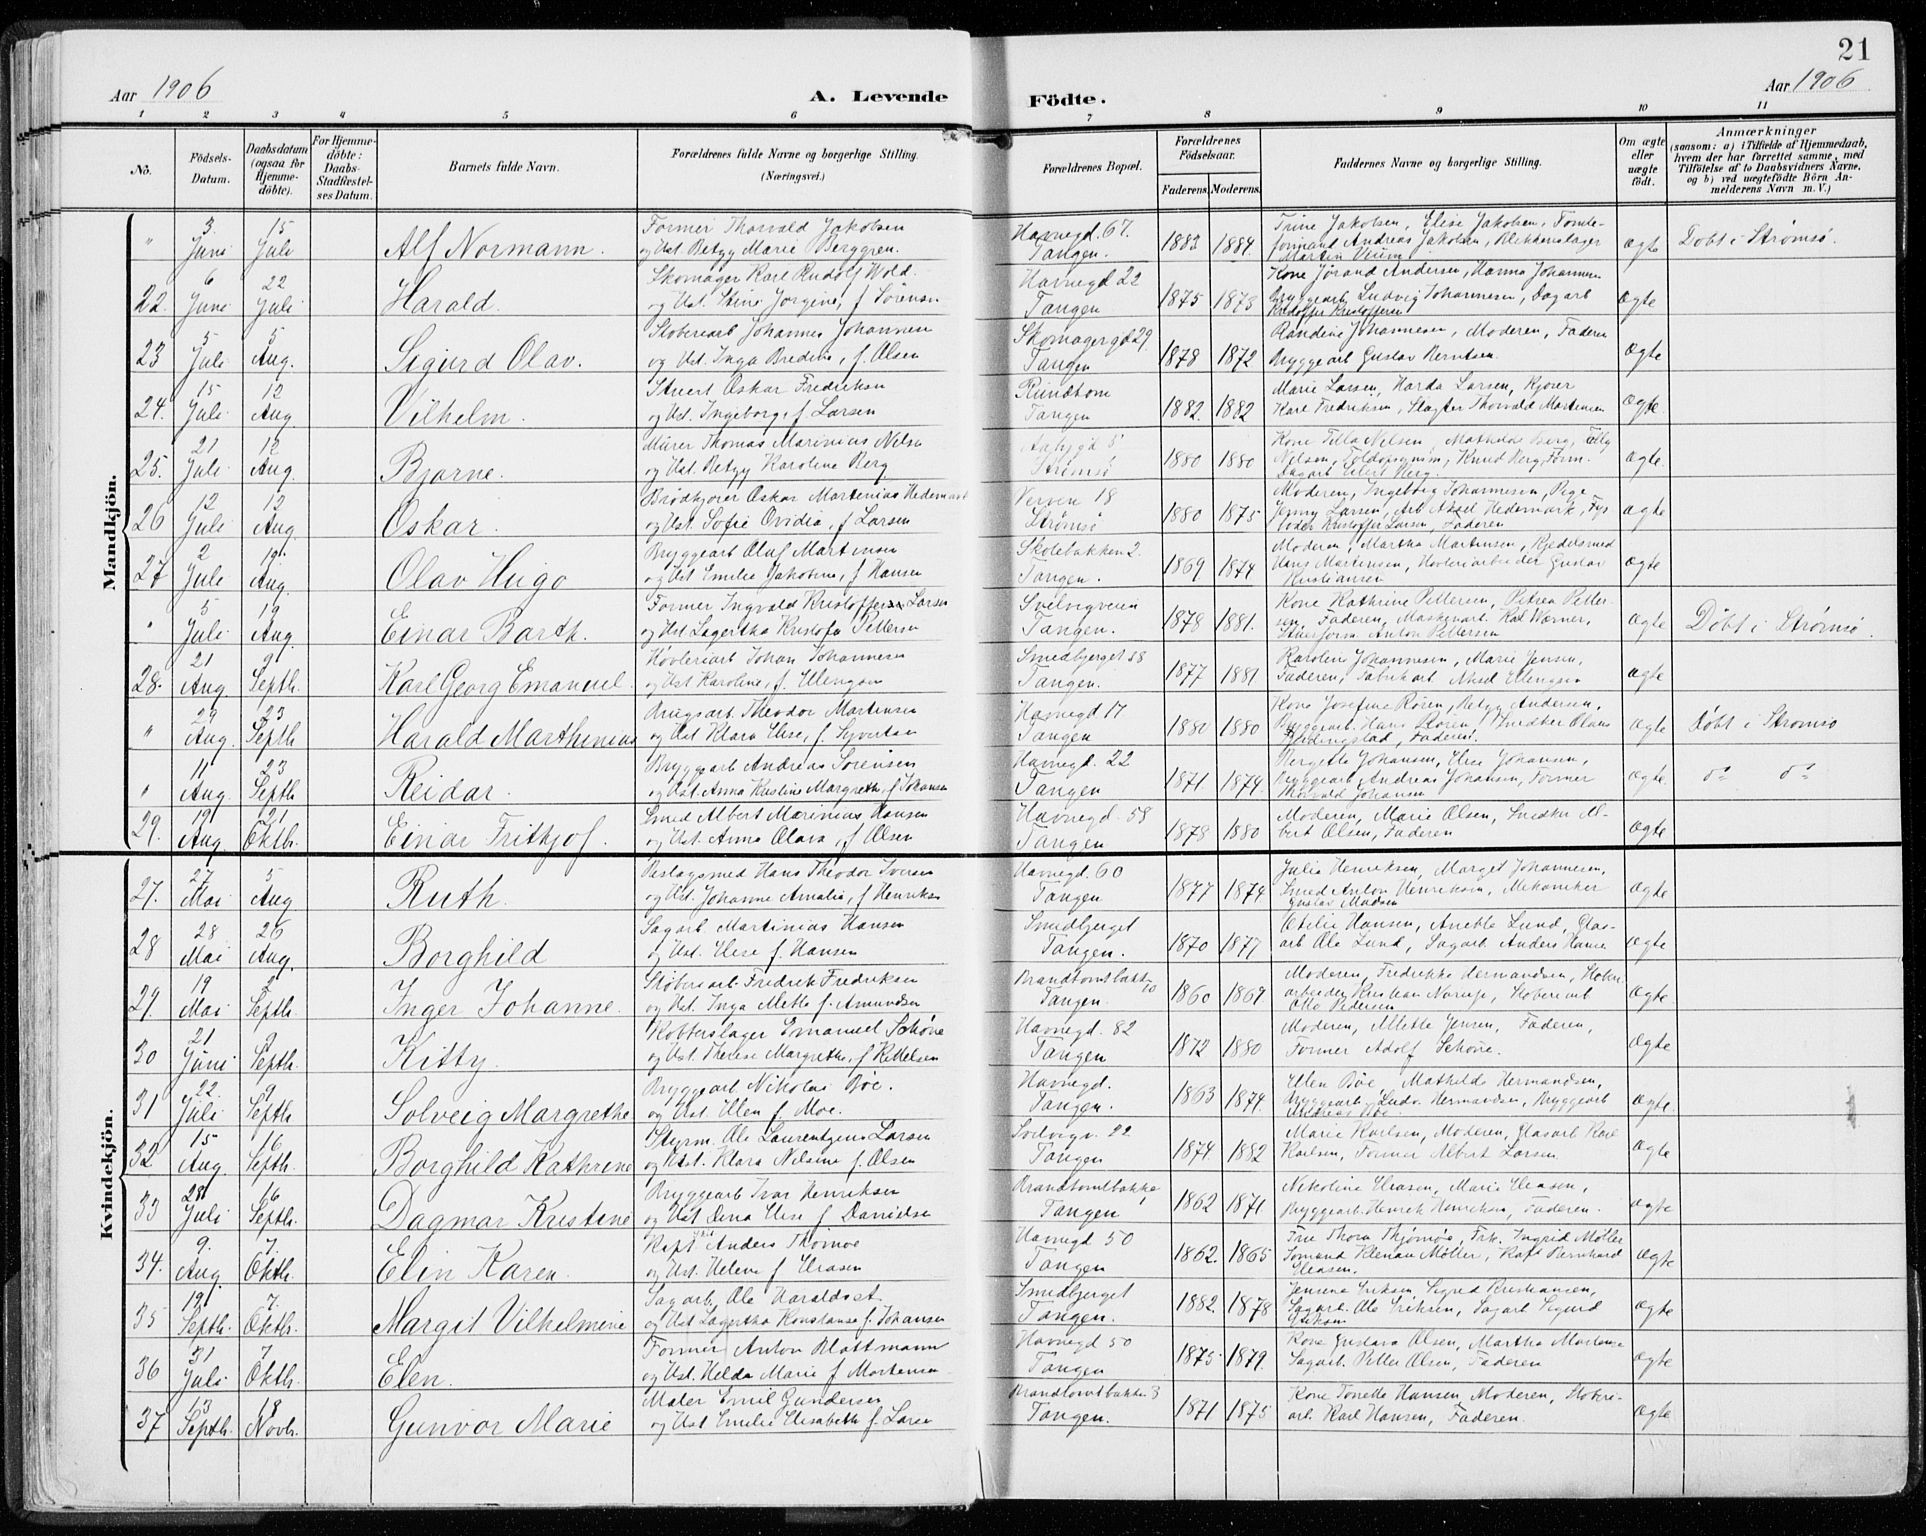 21
Aar 1906
A. Levende
Födte.
Aar 1906
1 2 3 4 5 6 7 8 9 10 11
No.
Födsels-Datum.
Daabsdatum (ogsaa for Hjemme-döbte).
For Hjemme-döbte: Daabs-Stadfæstel-ses Datum.
Barnets fulde Navn.
Forældrenes fulde Navne og borgerlige Stilling.
(Næringsvei.)
Forældrenes Bopæl.
Forældrenes Födselsaar.
Faderens. Moderens.
Faddernes Navne og borgerlige Stilling.
Om ægte eller uægte födt.
Anmærkninger
(saasom: a) i Tilfælde af Hjemmedaab, hvem der har forrettet samme, med Tilföielse af to Daabsvidners Navne, og b) ved uægtefödte Börn An-melderens Navn m. V.)
Mandkjön.
" 3. Juni 15 Juli Alf Normann. Former Thorvald Jakobsen
og Ust. Betzy Marie Berggren. Havnegd. 67. Tangen. 1883 1884. Trine Jakobsen, Elise Jakobsen, Tomte-
formand Andreas Jakobsen, Blikkenslager
Martin Ægte Døbt i Strømsø.
22. 6 Juni 22 Juli Harald. Skomager Karl Rudolf Wold
og Ust. Stine Jorgine, f Sörensen Havnegd 22 Tangen 1875 1873 Kone Jörand Andersen, Hanna Johannesen
Bryggearb. Ludvig Johannesen, Dagarb
Kristoffer Kristoffersen Ægte
23 5 Juli 5 Aug. Sigurd Olav. Støberiarb Johannes Johannesen
og Ust. Inga Bredine, f. Olsen Skomagergd 29. Tangen 1878 1872 Randine Johannesen, Moderen, Faderen
Bryggearb Gustav Berntsen. Ægte
24. 15 Juli. 12 Aug Vilhelm. Stuert Oskar Fredriksen
og Ust. Ingeborg, f Larsen Rundtom Tangen 1882. 1882 Marie Larsen, Harda Larsen, Kjører
Karl Fredriksen, Slagter Thorvald Martinsen Ægte
25. 21 Juli. 12 Aug Bjarne. Murer Thomas Marinius Nilsen
og Ust. Betzy Karoline Berg 5 Strømsö 1880 1880 Kone Tilla Nilsen Mathilde Berg, Tilly
Nilsen, Toldopsynsm. Knud Berg, Form.
Dagarb. Eilert Berg. Ægte.
26 12 Juli 12 Aug. Oskar. Brødkjører Oskar Martinius Hedemark
og Ust. Sofie Ovidia, f Larsen Verven 18 Strømsö 1880 1875 Moderen, Ingeborg Johannesen, Pige
Jenny Larsen, Arb Aksel Hedemark, Fyr-
böder Kristoffer Larsen, Faderen Ægte
27 2 Juli 19 Aug. Olav Hugo Bryggearb Oluf Martinsen
og Ust Emilie Jakobine, f Hansen Skolebakken 2. Tangen. 1869 1874 Moderen, Martha Martinsen, Kjedelsmed
Hans Martinsen, Høvleriarbeider Gustav
Kristiansen Ægte
" 5 Juli 19 Aug. Einar Barth. Former Ingvald Kristoffer Larsen
og Ust. Lagertha Kristofa Pettersen Svelvigveien Tangen. 1878 1881. Kone Kathrine Pettersen, Petrea Petter-
sen, Faderen, Maskinarb. Karl Werner,
Stuerform. Anton Pettersen Ægte Døbt i Strømsø.
28. 21 Aug. 9 Septb. Karl Georg Emanuel. Høvleriarb Johan Johannesen
og Ust Karoline, f. Ellingsen Smedbjerget 58 Tangen. 1877 1881 Karoline Johannesen, Marie Jensen,
Faderen, Fabrikarb. Aksel Ellingsen Ægte
" 29 Aug. 23 Septb Harald Marthinius Brugsarb. Theodor Martinsen
og Ust Klara Elise, f. Syvertsen Havnegd 17 Tangen 1880 1880 Kone Josefine Rören, Betzy Andersen,
Bryggearb. Hans Rören, Snedker Olaus
Hedingstad, Faderen. Ægte Døbt i Strømsø
" 11 Aug. 23 Septb Reidar. Bryggearb Andreas Sörensen
og Ust. Anna Kristine Margrethe, f Johansen Havnegd. 22 Tangen 1871 1874. Bergitte Johansen, Elise Johansen,
Bryggearb. Andreas Johansen, Former
Thorvald Johansen Ægte do do
29. 19 Aug. 21 Oktb. Einar Frithjof. Smed Albert Marinius Hansen
og Ust. Anna Olava, f Olsen Havnegd. 58 Tangen. 1878 1880 Moderen, Marie Olsen, Snedker Al-
bert Olsen, Faderen Ægte
Kvindekjön.
27. 27 Mai 5 Aug Ruth. Beslagsmed Hans Theodor Iversen
og Ust. Johanne Amalie, f Henriksen Havnegd. 60 Tangen. 1877 1874 Julie Henriksen, Margit Johannesen,
Smed Anton Henriksen, Mekaniker
Gustav Madsen Ægte
28 28 Mai 26 Aug. Borghild Sagarb. Martinius Hansen
og Ust. Elise f. Hansen Smedbjerget Tangen. 1870 1877 Otilie Hansen, Anette Lund, Glas-
arb Ole Lund, Sagarb. Anders Hansen Ægte
29. 19 Mai 2 Septb. Inger Johanne. Støberiarb. Fredrik Fredriksen
og Ust. Inga Mette f. Amundsen Brandtomtbakken 10 Tangen. 1860 1867 Moderen, Fredrikke Hermandsen,
arbeider Kristian Narup, Støberiarb
Otto Pedersen Ægte
30 21 Juni 9 Septb. Kitty. Kobberslager Emanuel Schøne
og Ust. Therese Margrethe, f Kittelsen Havnegd. 82 Tangen 1872 1880 Moderen, Mette Jensen, Faderen,
Former Adolf Schøne. Ægte
31 22 Juli 9 Septb Solveig Margrethe Bryggearb Nikolai Bøe.
og Ust Ellen f. Moe. Havnegd. Tangen. 1863 1874. Ellen Bøe Mathilde Hermandsen,
Bryggearb Ludv. Hermandsen, Bryggearb
Andreas Ægte.
32 15 Aug. 16 Septb. Borghild Kathrine Styrm. Ole Laurentzius Larsen
og Ust. Klara Nilsine f. Olsen Svelvigv. 22 Tangen 1874 1882 Marie Karlsen, Moderen, Glasarb Karl
Karlsen, Former Albert Larsen Ægte
33 28 Juli 16 Septb. Dagmar Kristine Bryggearb Ivar Henriksen
og Ust Dina Elise f Danielsen Brandtomtbakke 1 Tangen 1862 1871. Nikoline Eliasen, Marie Eliasen,
Bryggearb. Henrik Henriksen, Faderen. Ægte
34. 9. Aug 7. Oktb. Elin Karen. Kapt Anders Thømøe
og Ust. Helene f Eliasen Havnegd 50 Tangen 1862. 1865 Frue Thora Thjømøe, Frk. Ingrid Møller
Sømand Møller, Kapt Bernhard
Eliasen. Ægte
35 19 Septb. 7. Oktb. Margit Vilhelmine Sagarb. Ole Haraldset
og Ust Lagertha Konstanse f. Johansen Smedbjerget Tangen. 1882. 1878 Jensine Eriksen Sigrid Kristiansen,
Sagarb. Ole Eriksen, Sagarb Sigurd
Eriksen Ægte
36 31 Juli 7 Oktb. Elen. Former Anton Blattmann
og Ust. Helda Marie f Mortensen Havnegd 50 Tangen 1875. 1879. Kone Gustava Olsen, Martha Mortensen
Sagarb. Petter Olsen, Faderen Ægte
37 13 Septb. 18 Novb. Gunvor Marie Maler Emil Gundersen
og Ust Emilie Elisabeth f. Larsen Brandtomtbakke 3 Tangen. 1871 1875 Kone Tonette Hansen, Moderen, Støberi-
arb. Karl Hansen, Faderen. Ægte